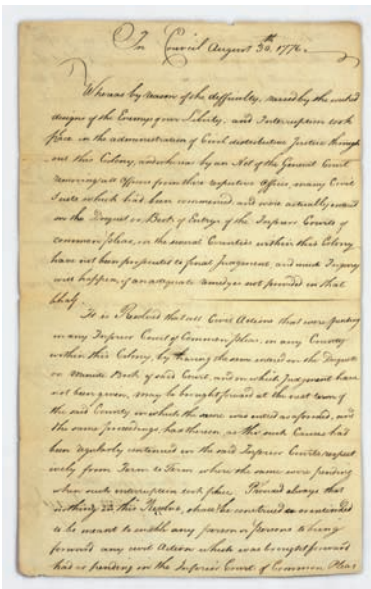 In Council August 30th. 1776.
Whereas by reason of the difficulty, raised by the wicked
designs of the Enemys of our Liberty, and Interruption took
place in the administration of Civil distributive Justice through
out this Colony, and whereas by an Act of the General Court
removing all Officers from their respective Offices, many Civil
Suits which had been commenced, and were actually entered
on the Docquet or Book of Entrys of the Inferior Courts of
common pleas, in the several Counties within this Colony
have not been prosecuted to final Judgment, and much Injury
will happen, if an adequate remedy is not provided in that
behalf.
It is Resolved that all Civil Actions that were pending
in any Inferior Court of Common pleas, in any County
within this Colony, by having the same entered on the Docquet
or Minute Book of said Court, and in which Judgment have
not been given, may be brought forward at the next term of
the said County in which the same was entered as aforesaid, and
the same proceedings, had thereon, as tho such Causes had
been regularly continued in the said Inferior Courts respect
ively from Term to Term where the same were pending
when such interruption took place. Provided always that
nothing in this Resolve, shall be construed or
to be meant to enable any person or persons to bring
forward any civil Action which was brought forward
had or pending in the Inferior Court of Common Pleas